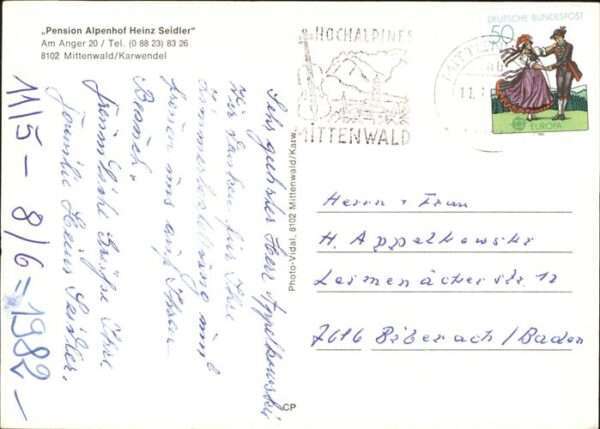 „Pension Alpenhof Heinz Seidler"
Am Anger 20 / Tel. (0 88 23) 83 26
8102 Mittenwald/Karwendel
HOCHALPINES
MITTENWALD
DEUTSCHE BUNDESPOST
50
EUROPA
Sehr geehrter Herr Appelkowski
Wir danken für Ihre
Zimmerbestellung und
freuen uns auf Ihren
Besuch.
freundliche Grüße Ihre
Familie Heinz Seidler.
11/5 – 8/6 = 1982 –
Photo-Vidal, 8102 Mittenwald/Karw.
CP
Herrn + Frau
H. Appelkowski
Leimenäckerstr. 12
7616 Biberach/Baden